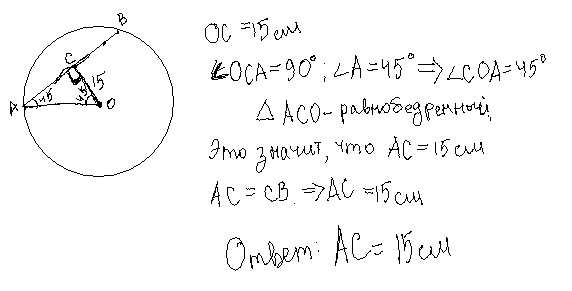 B
C
15
A 45 45 O
OC = 15 см
∠OCA = 90°; ∠A = 45° ⇒ ∠COA = 45°
△ ACO - равнобедренный,
Это значит, что AC = 15 см
AC = CB ⇒ AC = 15 см
Ответ: AC = 15 см